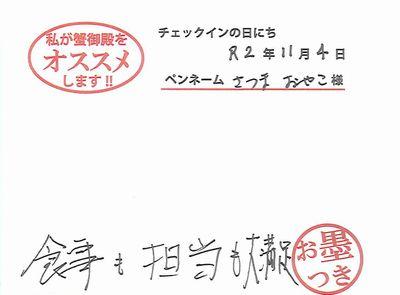 私が蟹御殿を
オススメ
します!!
チェックインの日にち
R2年11月4日
ペンネーム さつま おやこ 様
食事も 担当も大満足
お墨
つき